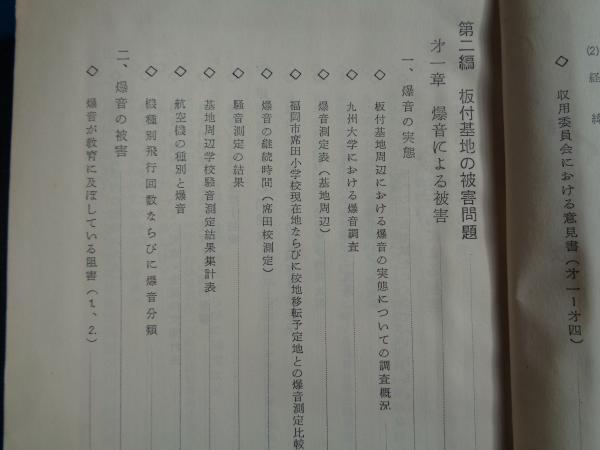 (2) 経緯
◇ 収用委員会における意見書(才一ー才四)
第二編 板付基地の被害問題
才一章 爆音による被害
一、爆音の実態
◇ 板付基地周辺における爆音の実態についての調査概況
◇ 九州大学における爆音調査
◇ 爆音測定表(基地周辺)
◇ 福岡市席田小学校現在地ならびに校地移転予定地との爆音測定比較
◇ 爆音の継続時間(席田校測定)
◇ 騒音測定の結果
◇ 基地周辺学校騒音測定結果集計表
◇ 航空機の種別と爆音
◇ 機種別飛行回数ならびに爆音分類
二、爆音の被害
◇ 爆音が教育に及ぼしている阻害(1、2.)